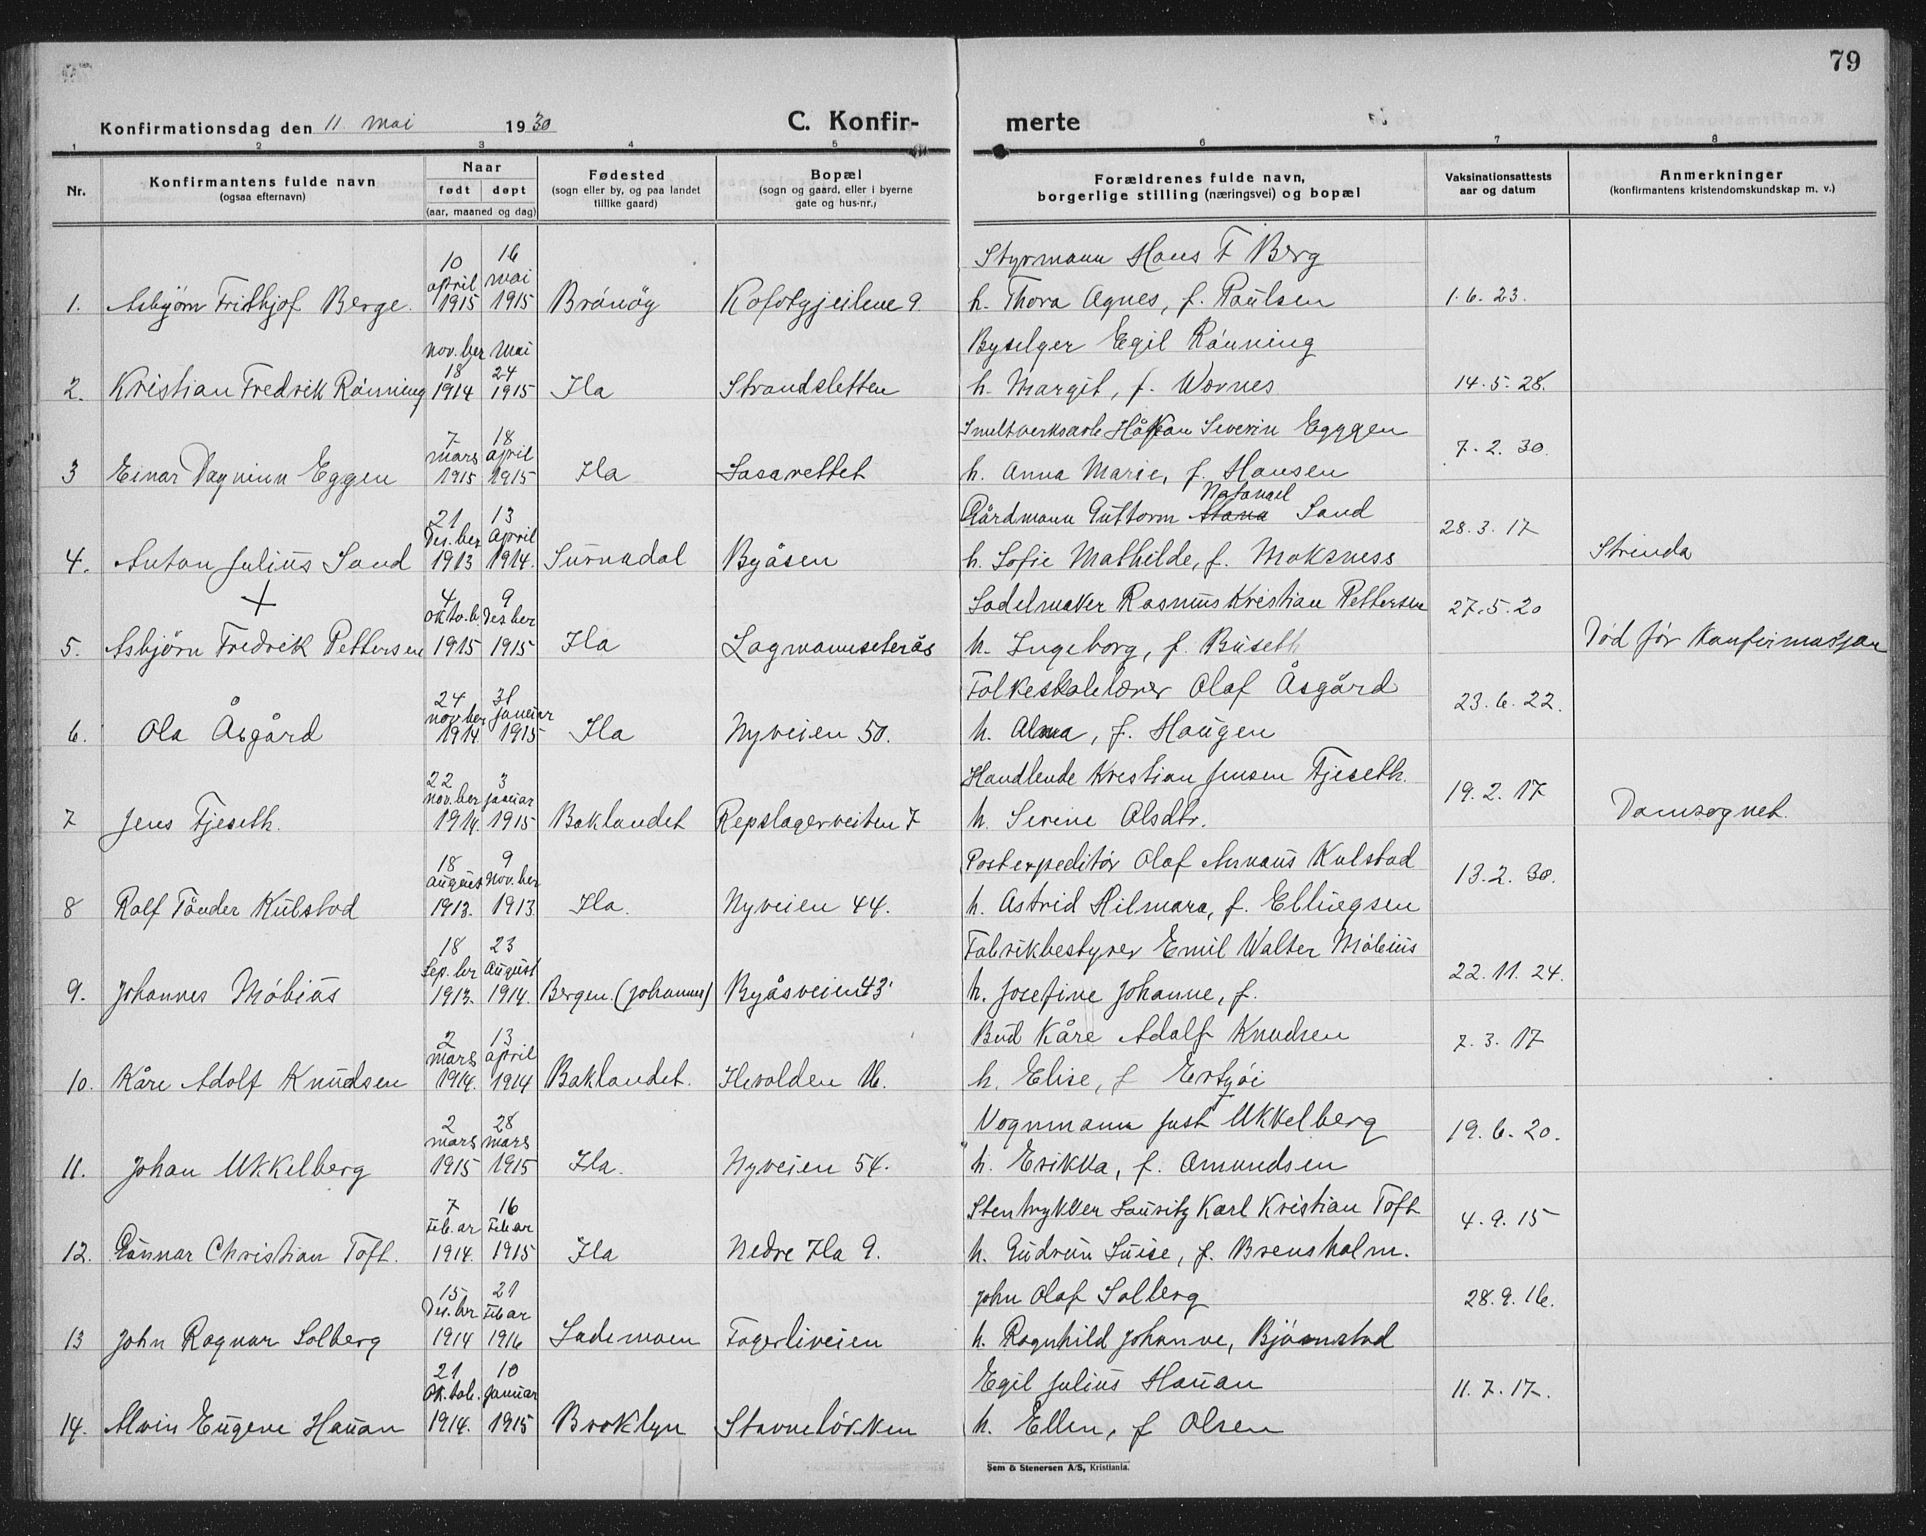 79
Konfirmationsdag den 11. mai 1930
C. Konfir-merte
1 2 3 4 5 6 7 8
Nr.
Konfirmantens fulde navn
(ogsaa efternavn)
Naar
født døpt
(aar, maaned og dag)
Fødested
(sogn eller by, og paa landet
tillike gaard)
Bopæl
(sogn og gaard, eller i byerne
gate og hus-nr.)
Forældrenes fulde navn,
borgerlige stilling (næringsvei) og bopæl
Vaksinationsattests
aar og datum
Anmerkninger
(konfirmantens kristendomskundskap m. v.)
10 april 16 mai Styrmann Hans F Berg
1. Asbjørn Fridthjof Berge. 1915 1915 Brönöy 9. h. Thora Agnes, f. Paulsen 1.6.23.
nov.ber 18 mai 24 Byselger Egil Rönning
2. Kristian Fredrik Rönning 1914 1915 Ila Strandsletten h. Margit, f. Wornes 14.5.28.
7 mars 18 april Håkon Severin Egggen
3 Einar Dagfinn Eggen 1915 1915 Ila Lasarettet h. Anna Marie, f. Hansen 7.2.30.
21 Des.ber 13 April Gårdmann Guttorm Natanael Sand 28.3.17
4. Anton Julius Sand 1913 1914. Surnadal Byåsen h. Sofie Mathilde, f. Moksness Strinda
+
4 oktob. 9 Des.ber Sadelmaker Rasmus Kristian Pettersen 27.5.20
5. Asbjörn Fredrik Pettersen 1915 1915 Ila Lagmannseterås h. Ingeborg, f. Buseth Död för Konfirmasjon
24 nov.ber 31 januar Folkeskolelærer Olaf Åsgård
6. Ola Åsgård 1914. 1915 Ila Nyveien 50. h. Alma, f. Haugen 23.6.22.
22 nov.ber 3 januar Handlende Kristian Jensen Fjeseth.
7 Jens Fjeseth. 1914. 1915 Baklandet Repslagerveiten 7 h. Serine Olsdtr. 19.2.17 Domsognet.
18 August 9 Nov.ber Postexpeditör Olaf Arnaus Kulstad
8 Rolf Tönder Kulstad 1913. 1913 Ila. Nyveien 44. h. Astrid Hilmara, f. Ellingsen 13.2.30.
18 Sep.ber 23 August Fabrikbestyrer Emil Walter Möbius
9. Johannes Möbius 1913. 1914. Bergen. (Johannes) Byåsveien 43 h. Josefine Johanne, f. 22.11.24.
2 mars 13 april Bud Kåre Adolf Knudsen
10. Kåre Adolf Knudsen 1914. 1914 Baklandet. Ilevolden 16. h. Elise, f 7.3.17
2 mars 28 mars Vognmann Just Ukkelberg
11. Johan Ukkelberg 1915 1915 Ila. Nyveien 54. h. Erikka, f. Amundsen 19.6.20.
7 Feb.ar 16 Feb.ar Stentrykker Lauritz Karl Kristian Toft
12. Gunnar Christian Toft. 1914. 1915 Ila Nedre Ila 9. h. Gudrun Luise, f. Brensholm. 4.9.15
15 Des.ber 21 Feb.ar John Olaf Solberg
13 John Ragnar Solberg 1914 1916 Lademoen Fagerliveien h. Ragnhild Johanne, Björnstad 28.9.16.
21 Oktob. 10 Januar Egil Julius Hauan
14. Alvin Eugene Hauan 1914. 1915 Broklyn Stavnelökken h. Ellen, f Olsen 11.7.17.
Sem & Stenersen A/S, Kristiania.